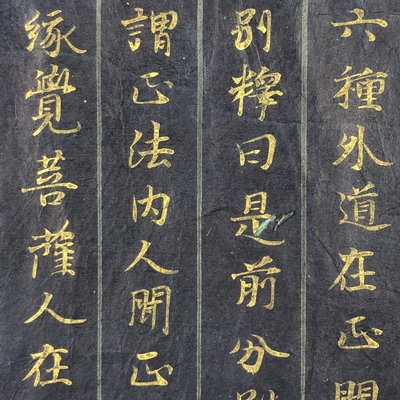 六種外道在正聞
別釋曰是前分別
謂正法内人聞正
緣覺菩薩人在